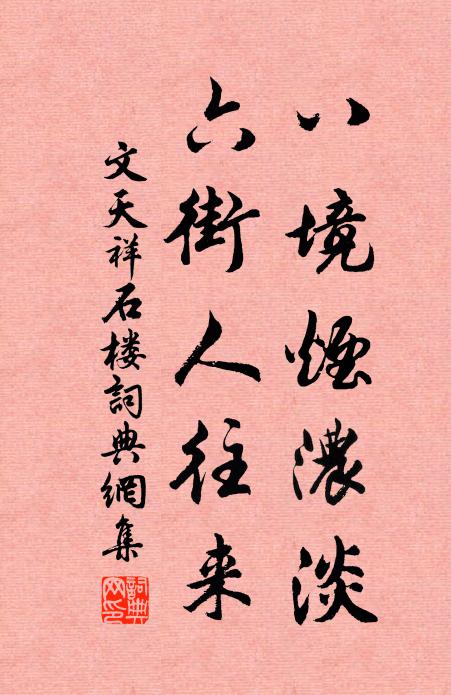 八境煙濃淡
六街人往来
文天祥石楼詞典網集
詞典網印